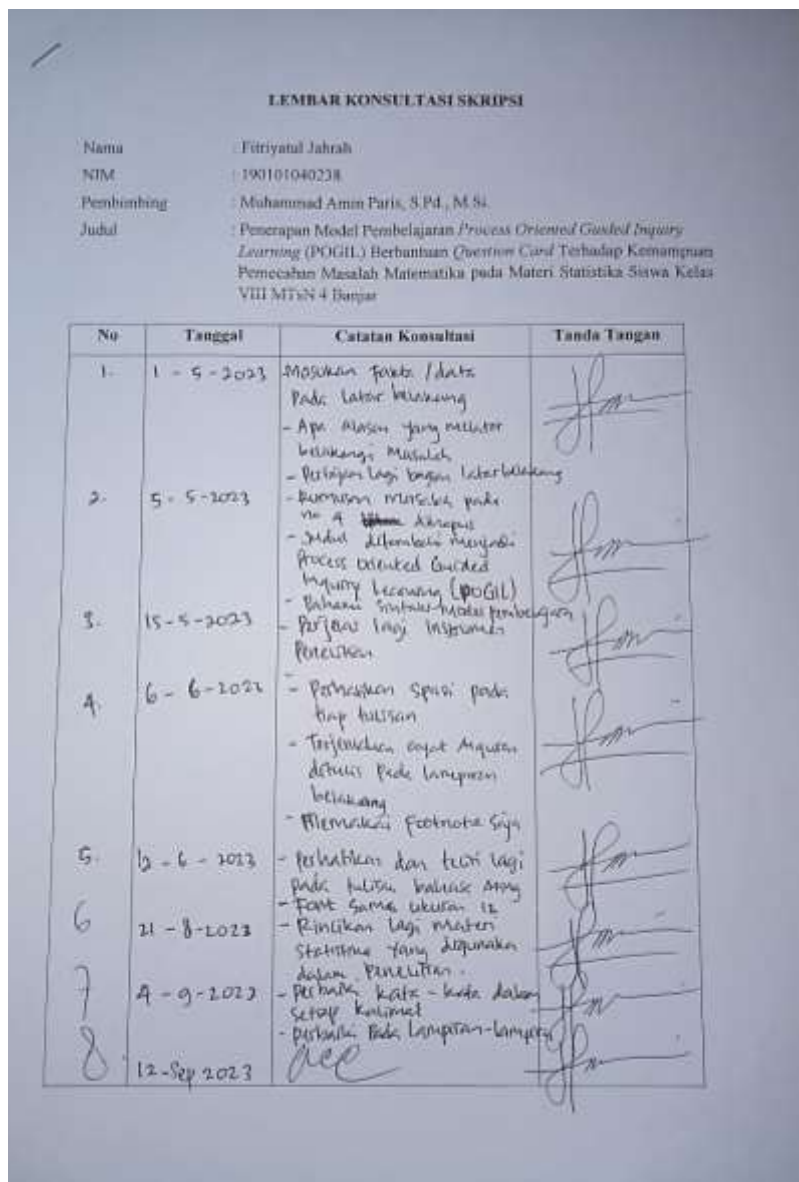 LEMBAR KONSULTASI SKRIPSI
Nama : Fitriyatul Jahrah
NIM : 190101040238
Pembimbing : Muhammad Amin Paris, S.Pd., M.Si.
Judul : Penerapan Model Pembelajaran Process Oriented Guided Inquiry
Learning (POGIL) Berbantuan Question Card Terhadap Kemampuan
Pemecahan Masalah Matematika pada Materi Statistika Siswa Kelas
VIII MTsN 4 Banjar
No Tanggal Catatan Konsultasi Tanda Tangan
1. 1 - 5 - 2023 Masukan Fakta / data
pada latar belakang
- Apa alasan yang melatar
belakangi Masalah
- Pertajam lagi bagian latar belakang
2. 5 - 5 - 2023 - Rumusan masalah pada
no 4 dihapus
- Judul menjadi
Process Oriented Guided
Inquiry Learning (POGIL)
- model pembelajaran
3. 15 - 5 - 2023 - Perjelas lagi Instrumen
Penelitian
4. 6 - 6 - 2023 - Perhatikan Spasi pada
tiap tulisan
- ayat Alquran
ditulis pada lampiran
belakang
- Memakai Footnote
5. 12 - 6 - 2023 - Perhatikan dan lagi
pada tulisan bahasa
- Font sama ukuran 12
6 21 - 8 - 2023 - Rincikan lagi materi
Statistika yang digunakan
dalam Penelitian.
7 4 - 9 - 2023 - perbaiki kata - kata dalam
setiap kalimat
- perbaiki pada lampiran-lampiran
8. 12 - Sep 2023 acc